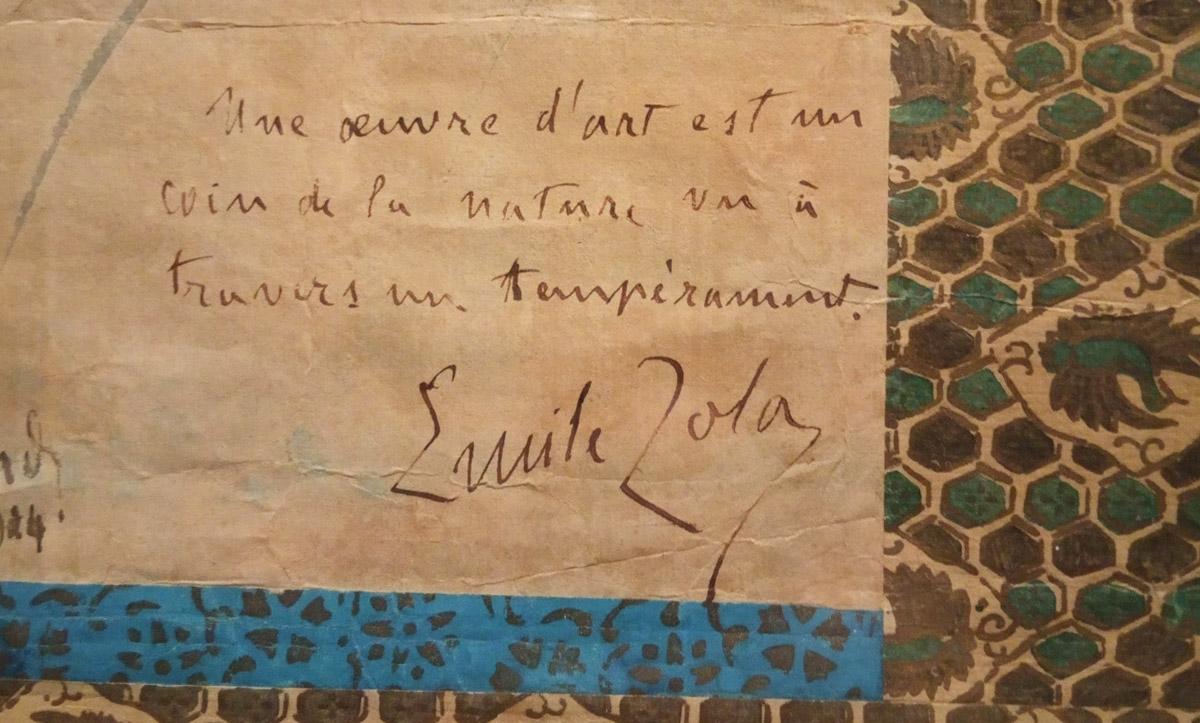 Une œuvre d'art est un
coin de la nature vu à
travers un tempérament.
Emile Zola